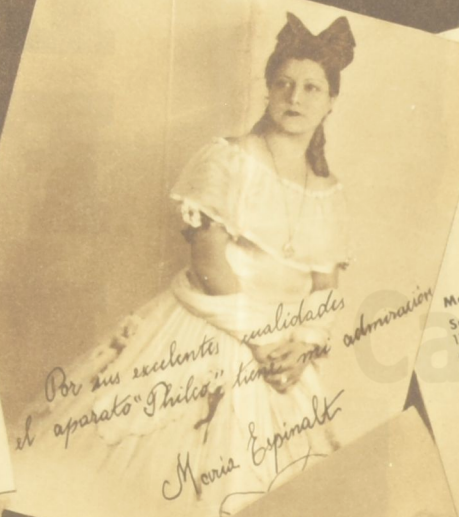 Por sus excelentes cualidades
el aparato "Philco" tiene mi admiración
Maria Espinalt